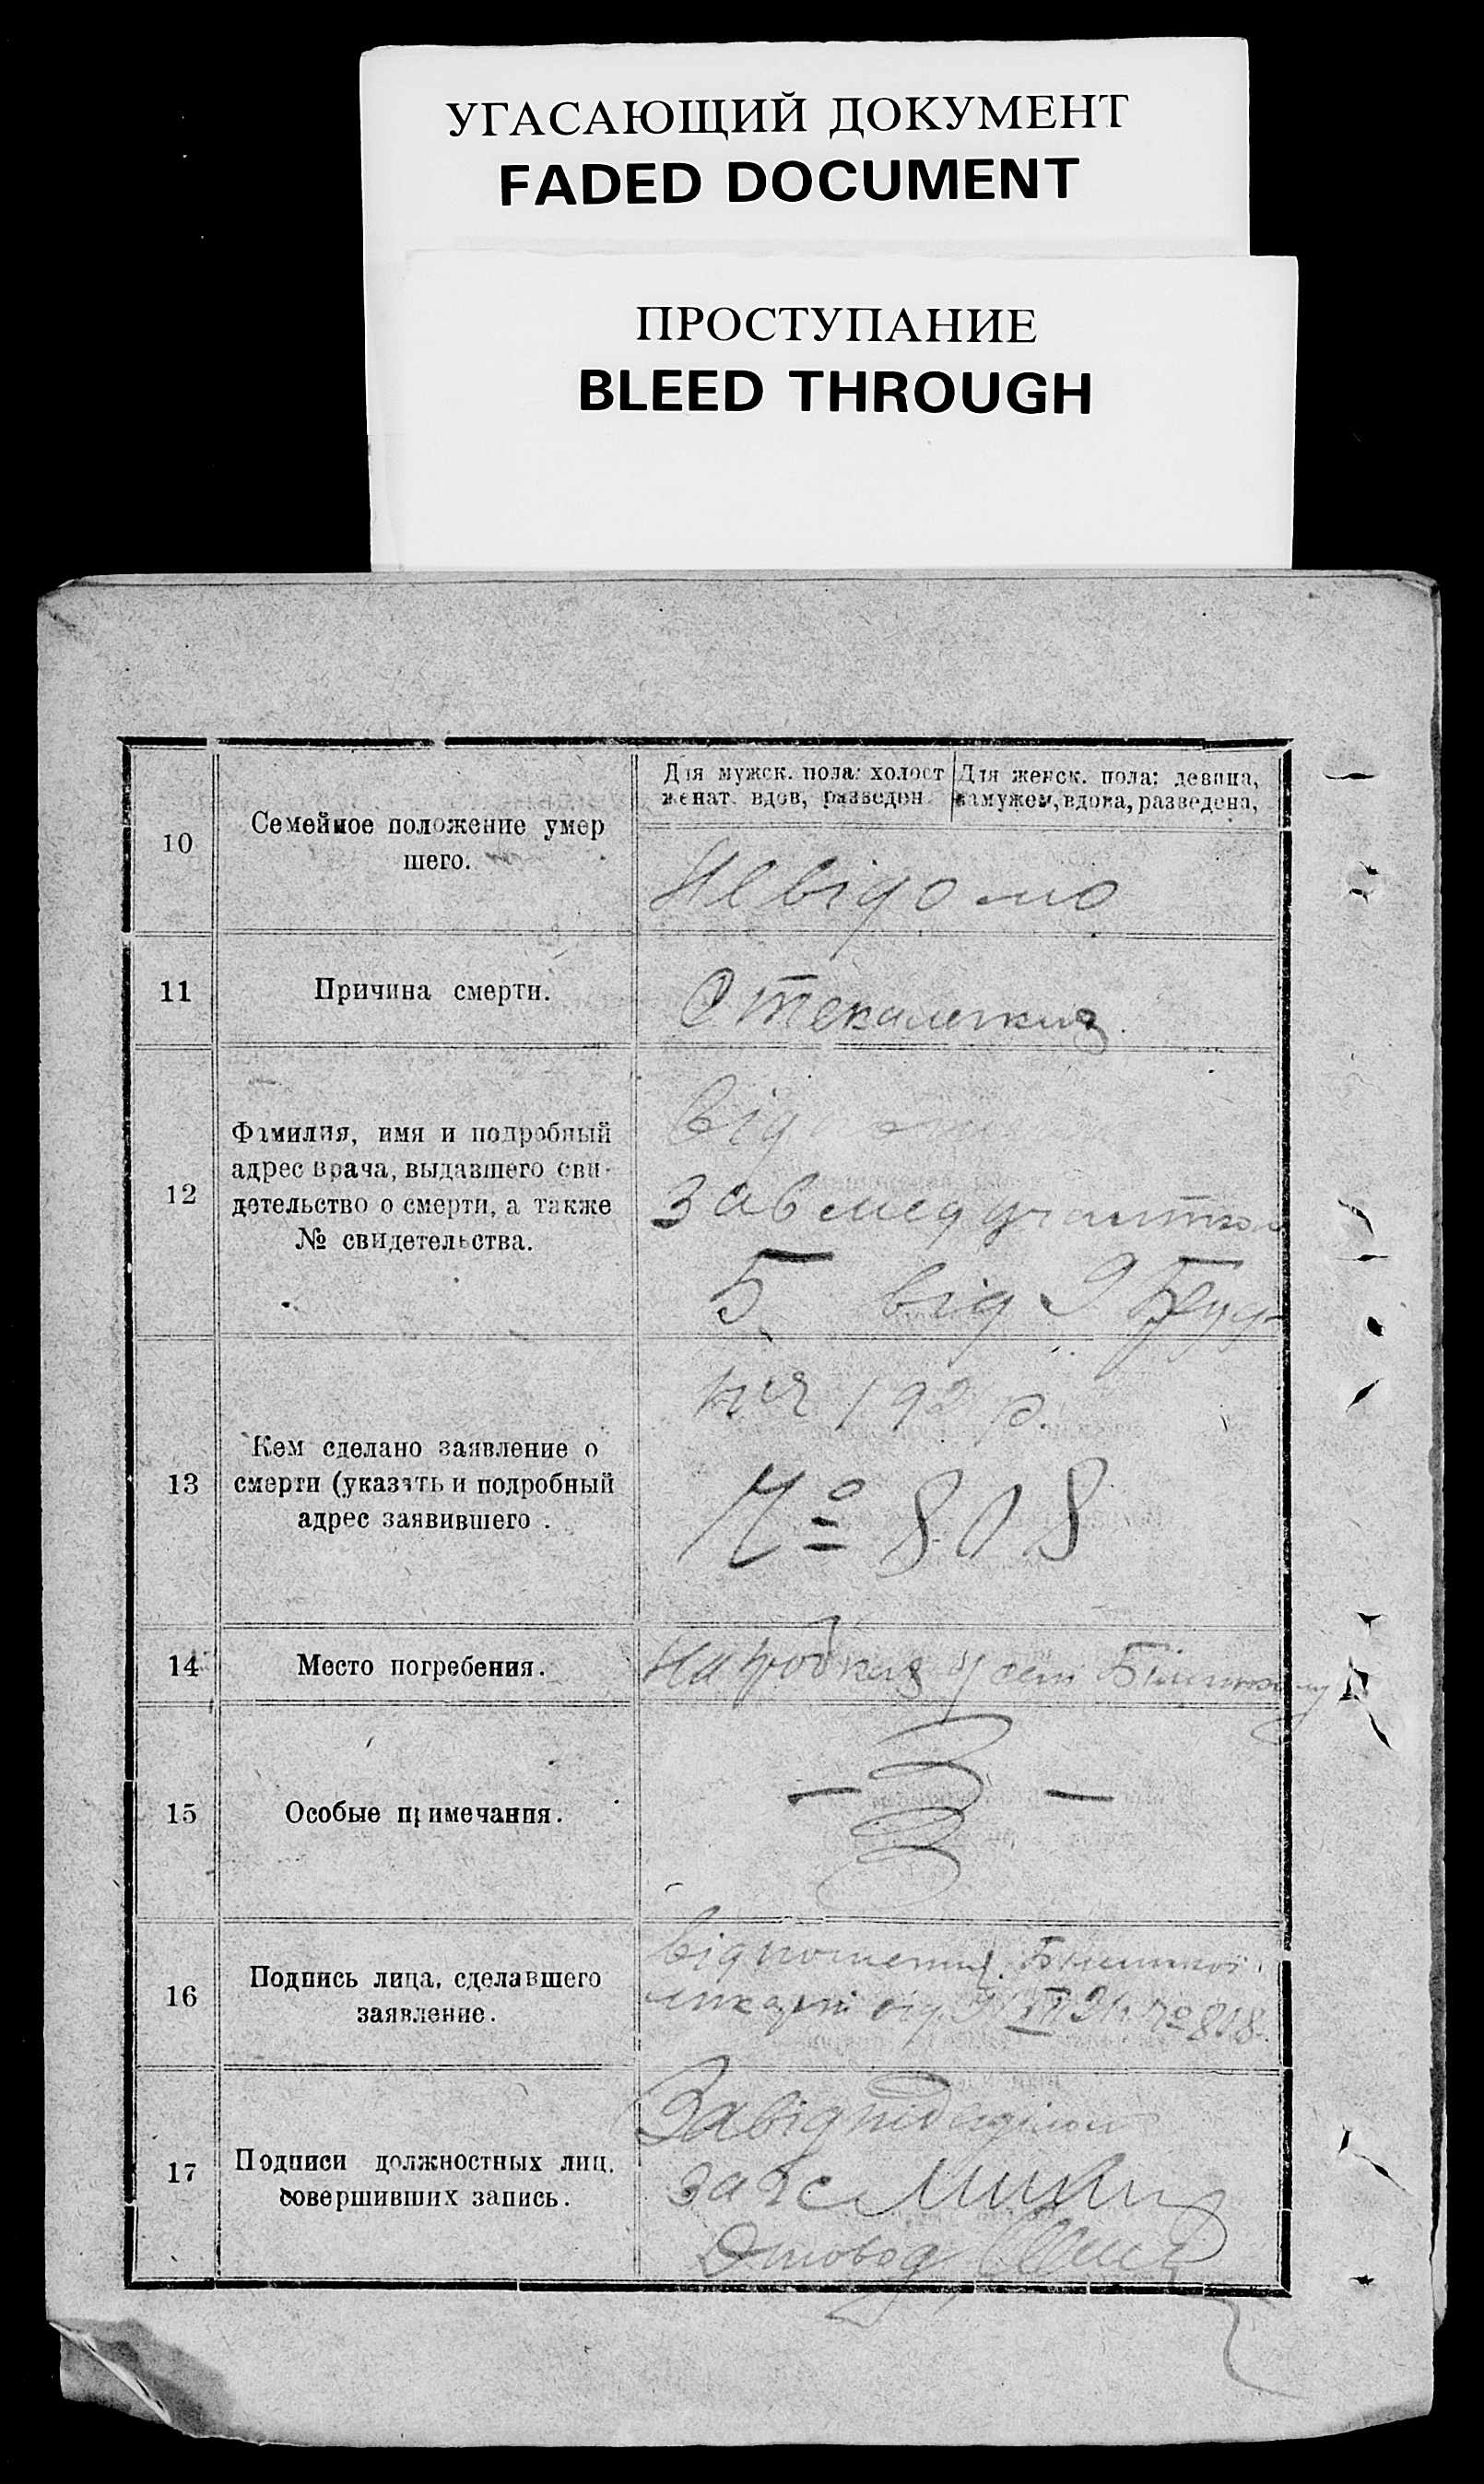 УГАСАЮЩИЙ ДОКУМЕНТ
FADED DOCUMENT
ПРОСТУПАНИЕ
BLEED THROUGH
10
Семейное положение умер
шего.
Для мужск. пола: холост
женат. вдов, разведен.
Для женск. пола: девица,
замужем, вдова, разведена,
Невідомо
11
Причина смерти.
12
Фамилия, имя и подробный
адрес врача, выдавшего сви-
детельство о смерти, а также
№ свидетельства.
Від
Зав мед
5 від 9 Груд
ня 192 р.
№ 808
13
Кем сделано заявление о
смерти (указать и подробный
адрес заявившего .
14
Место погребения.
На гробках у селі
15
Особые примечания.
— —
16
Подпись лица, сделавшего
заявление.
Відношення
лікарні від XII № 808
17
Подписи должностных лиц,
совершивших запись.
Завід
загс
Діловод